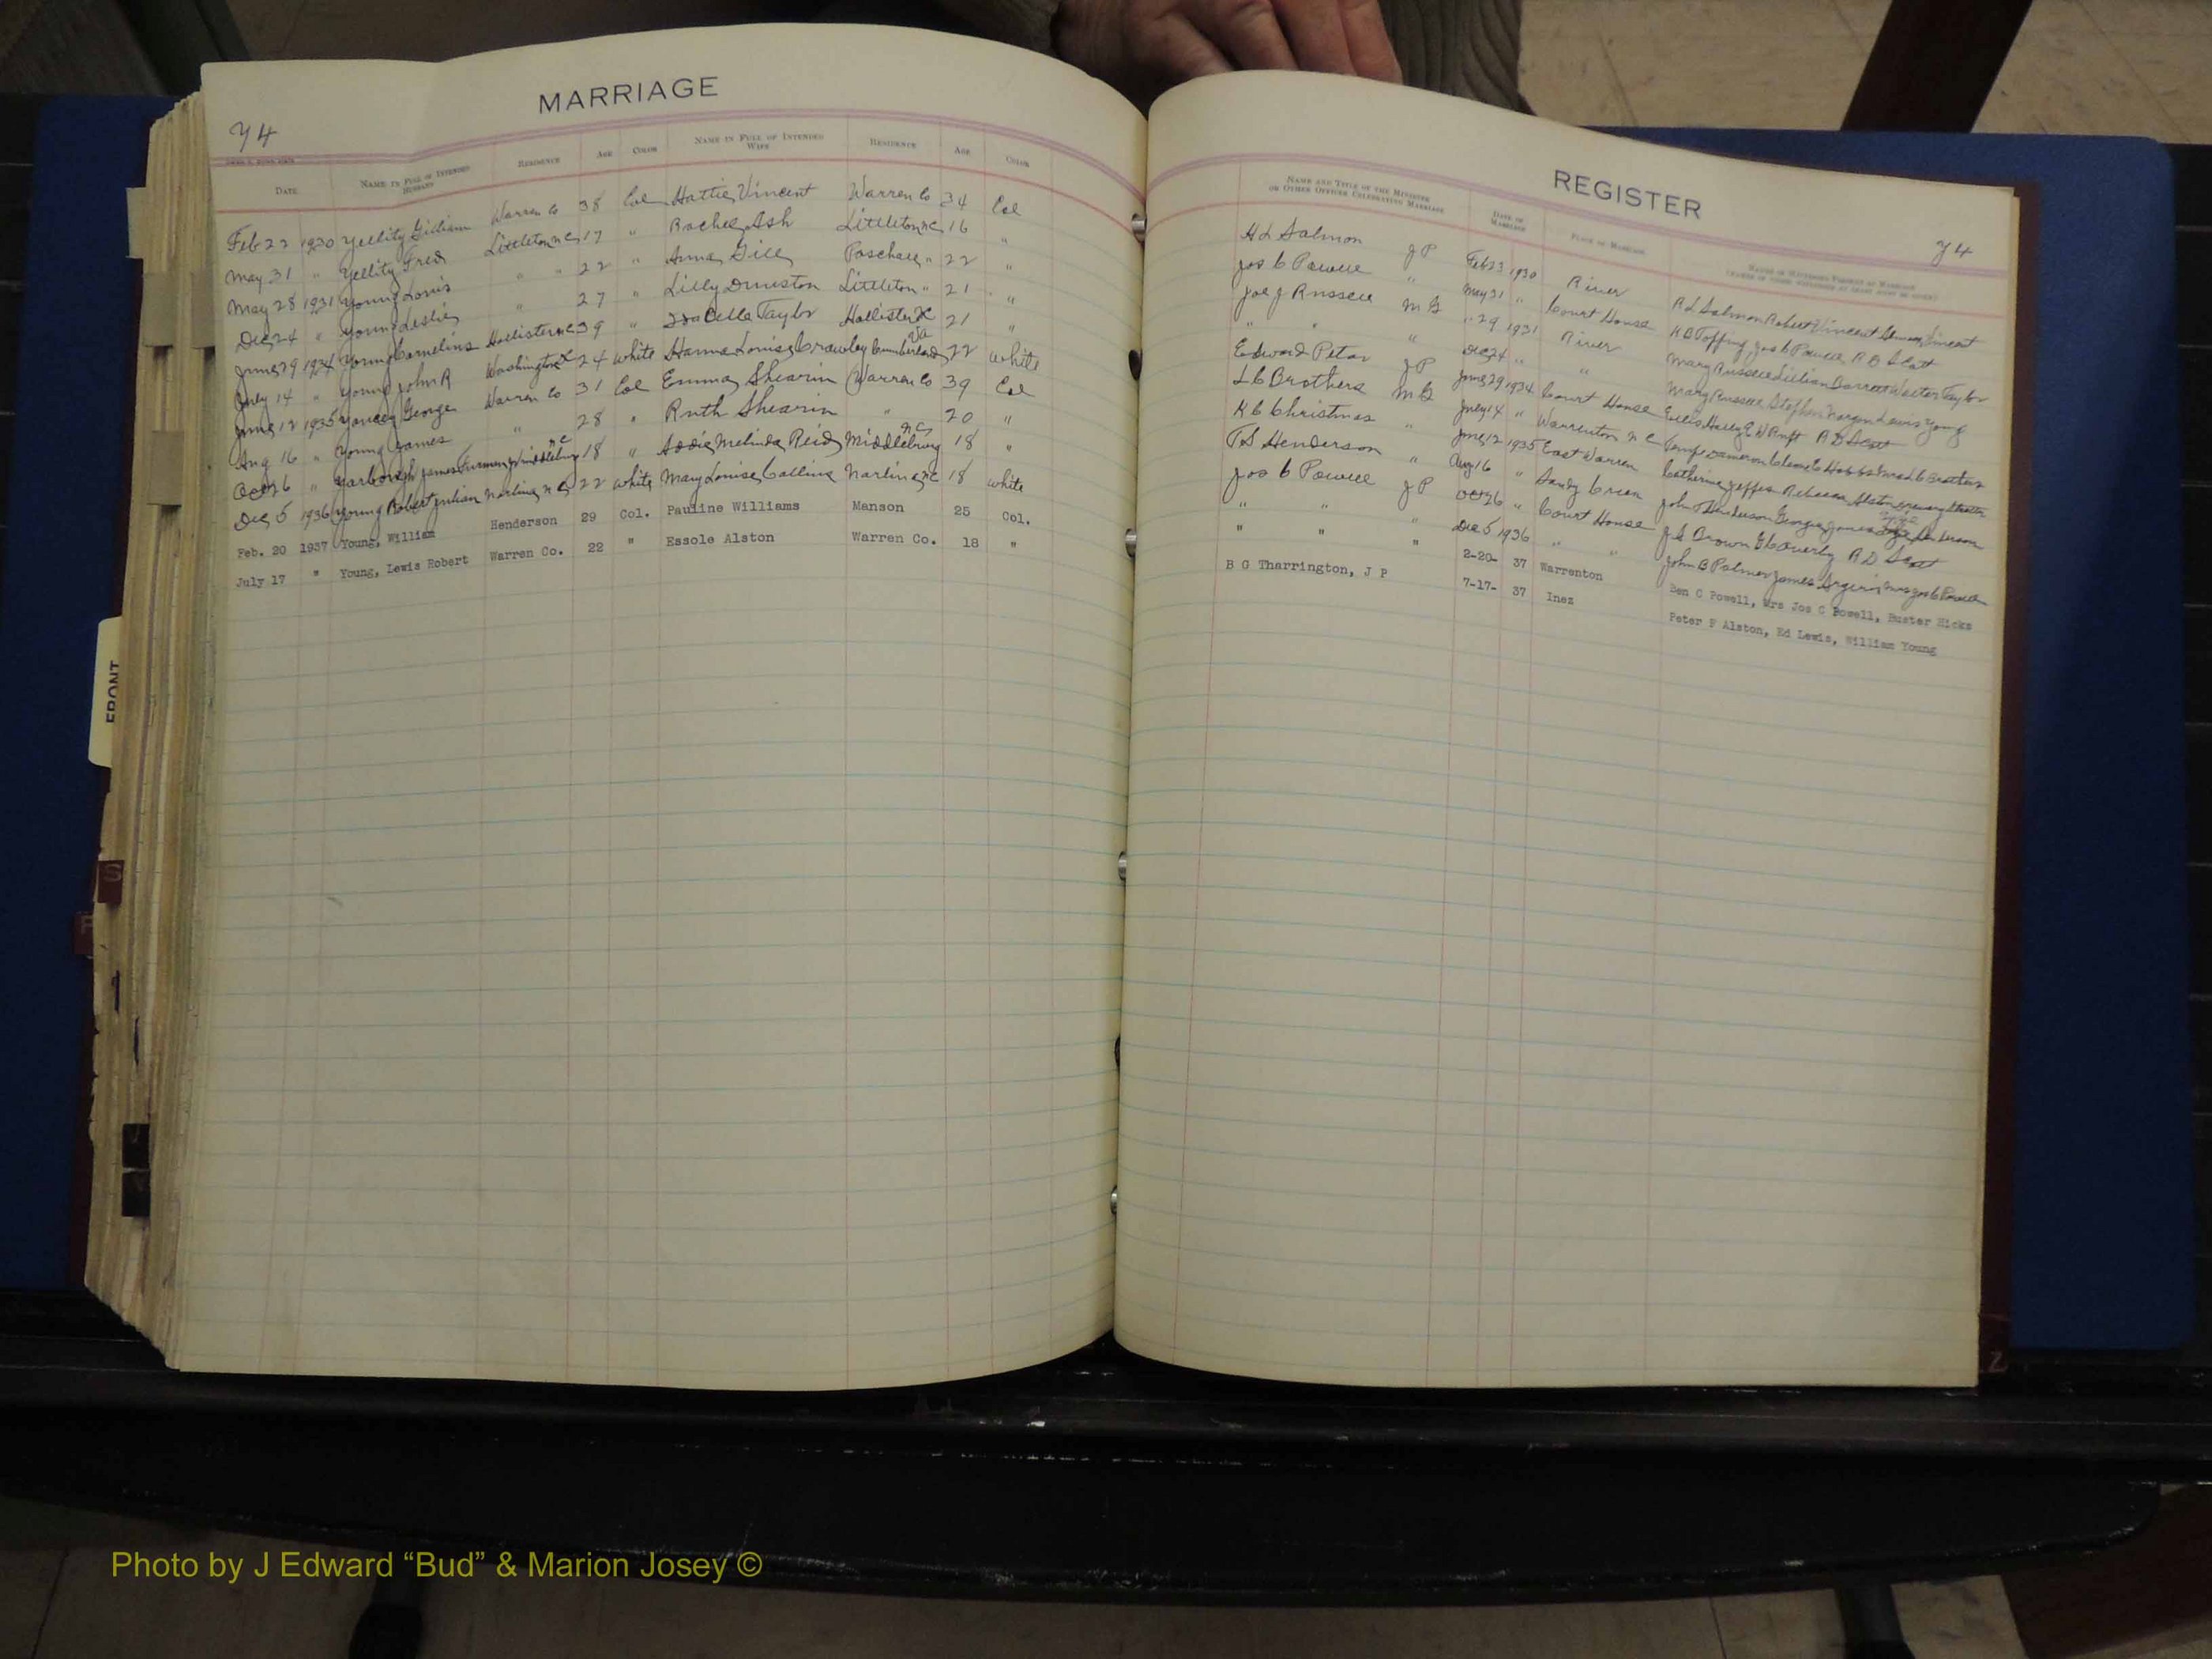 MARRIAGE
Y4
DATE NAME IN FULL OF INTENDED HUSBAND RESIDENCE AGE COLOR NAME IN FULL OF INTENDED WIFE RESIDENCE AGE COLOR
Feb 22 1930 Yellity Gilliam Warren Co 38 Col Hattie Vincent Warren Co 34 Col
May 31 " Yellity Fred Littleton NC 17 " Rachel Ash Littleton NC 16 "
May 28 1931 Young Louis " " 22 " Anna Gill Paschall " 22 "
Dec 24 " Young Leslie " 27 " Lilly Dunston Littleton " 21 "
June 29 1934 Young Cornelius Hollister NC 39 " Isabella Taylor Hollister NC 21 "
July 14 " Young John R Washington 24 White Hanna Louise Crawley Cumberland Va 22 White
June 12 1935 Yancey George Warren Co 31 Col Emma Shearin Warren Co 39 Col
Aug 16 " Young James " 28 " Ruth Shearin " 20 "
Oct 26 " Yarborough James Furman Middleburg NC 18 " Addie Melinda Reid Middleburg NC 18 "
Dec 5 1936 Young Robert Julian Norlina NC 22 White Mary Louise Collins Norlina NC 18 White
Feb. 20 1937 Young, William Henderson 29 Col. Pauline Williams Manson 25 Col.
July 17 " Young, Lewis Robert Warren Co. 22 " Essole Alston Warren Co. 18 "
FRONT
S
REGISTER
Y4
NAME AND TITLE OF THE MINISTER OR OTHER OFFICER CELEBRATING MARRIAGE DATE OF MARRIAGE PLACE OF MARRIAGE
H L Salmon J P Feb 23 1930 River R L Salmon Robert Vincent Vincent
Jos C Powell " May 31 " Court House Jos C Powell R D Scott
Joe J Russell M G " 29 1931 River Mary Russell Lillian Walter Taylor
" " " Dec 24 " " Mary Russell Stephen Lewis Young
Edward Petar J P June 29 1934 Court House R D Scott
L C Brothers M G July 14 " Warrenton N C
K C Christmas " June 12 1935 East Warren
T S Henderson " Aug 16 " Sandy Creek
Jos C Powell J P Oct 26 " Court House J S Brown R D Scott
" " " Dec 5 1936 " " John B Palmer James
" " " 2-20- 37 Warrenton Ben C Powell, Mrs Jos C Powell, Buster Hicks
B G Tharrington, J P 7-17- 37 Inez Peter F Alston, Ed Lewis, William Young
Z
Photo by J Edward “Bud” & Marion Josey ©